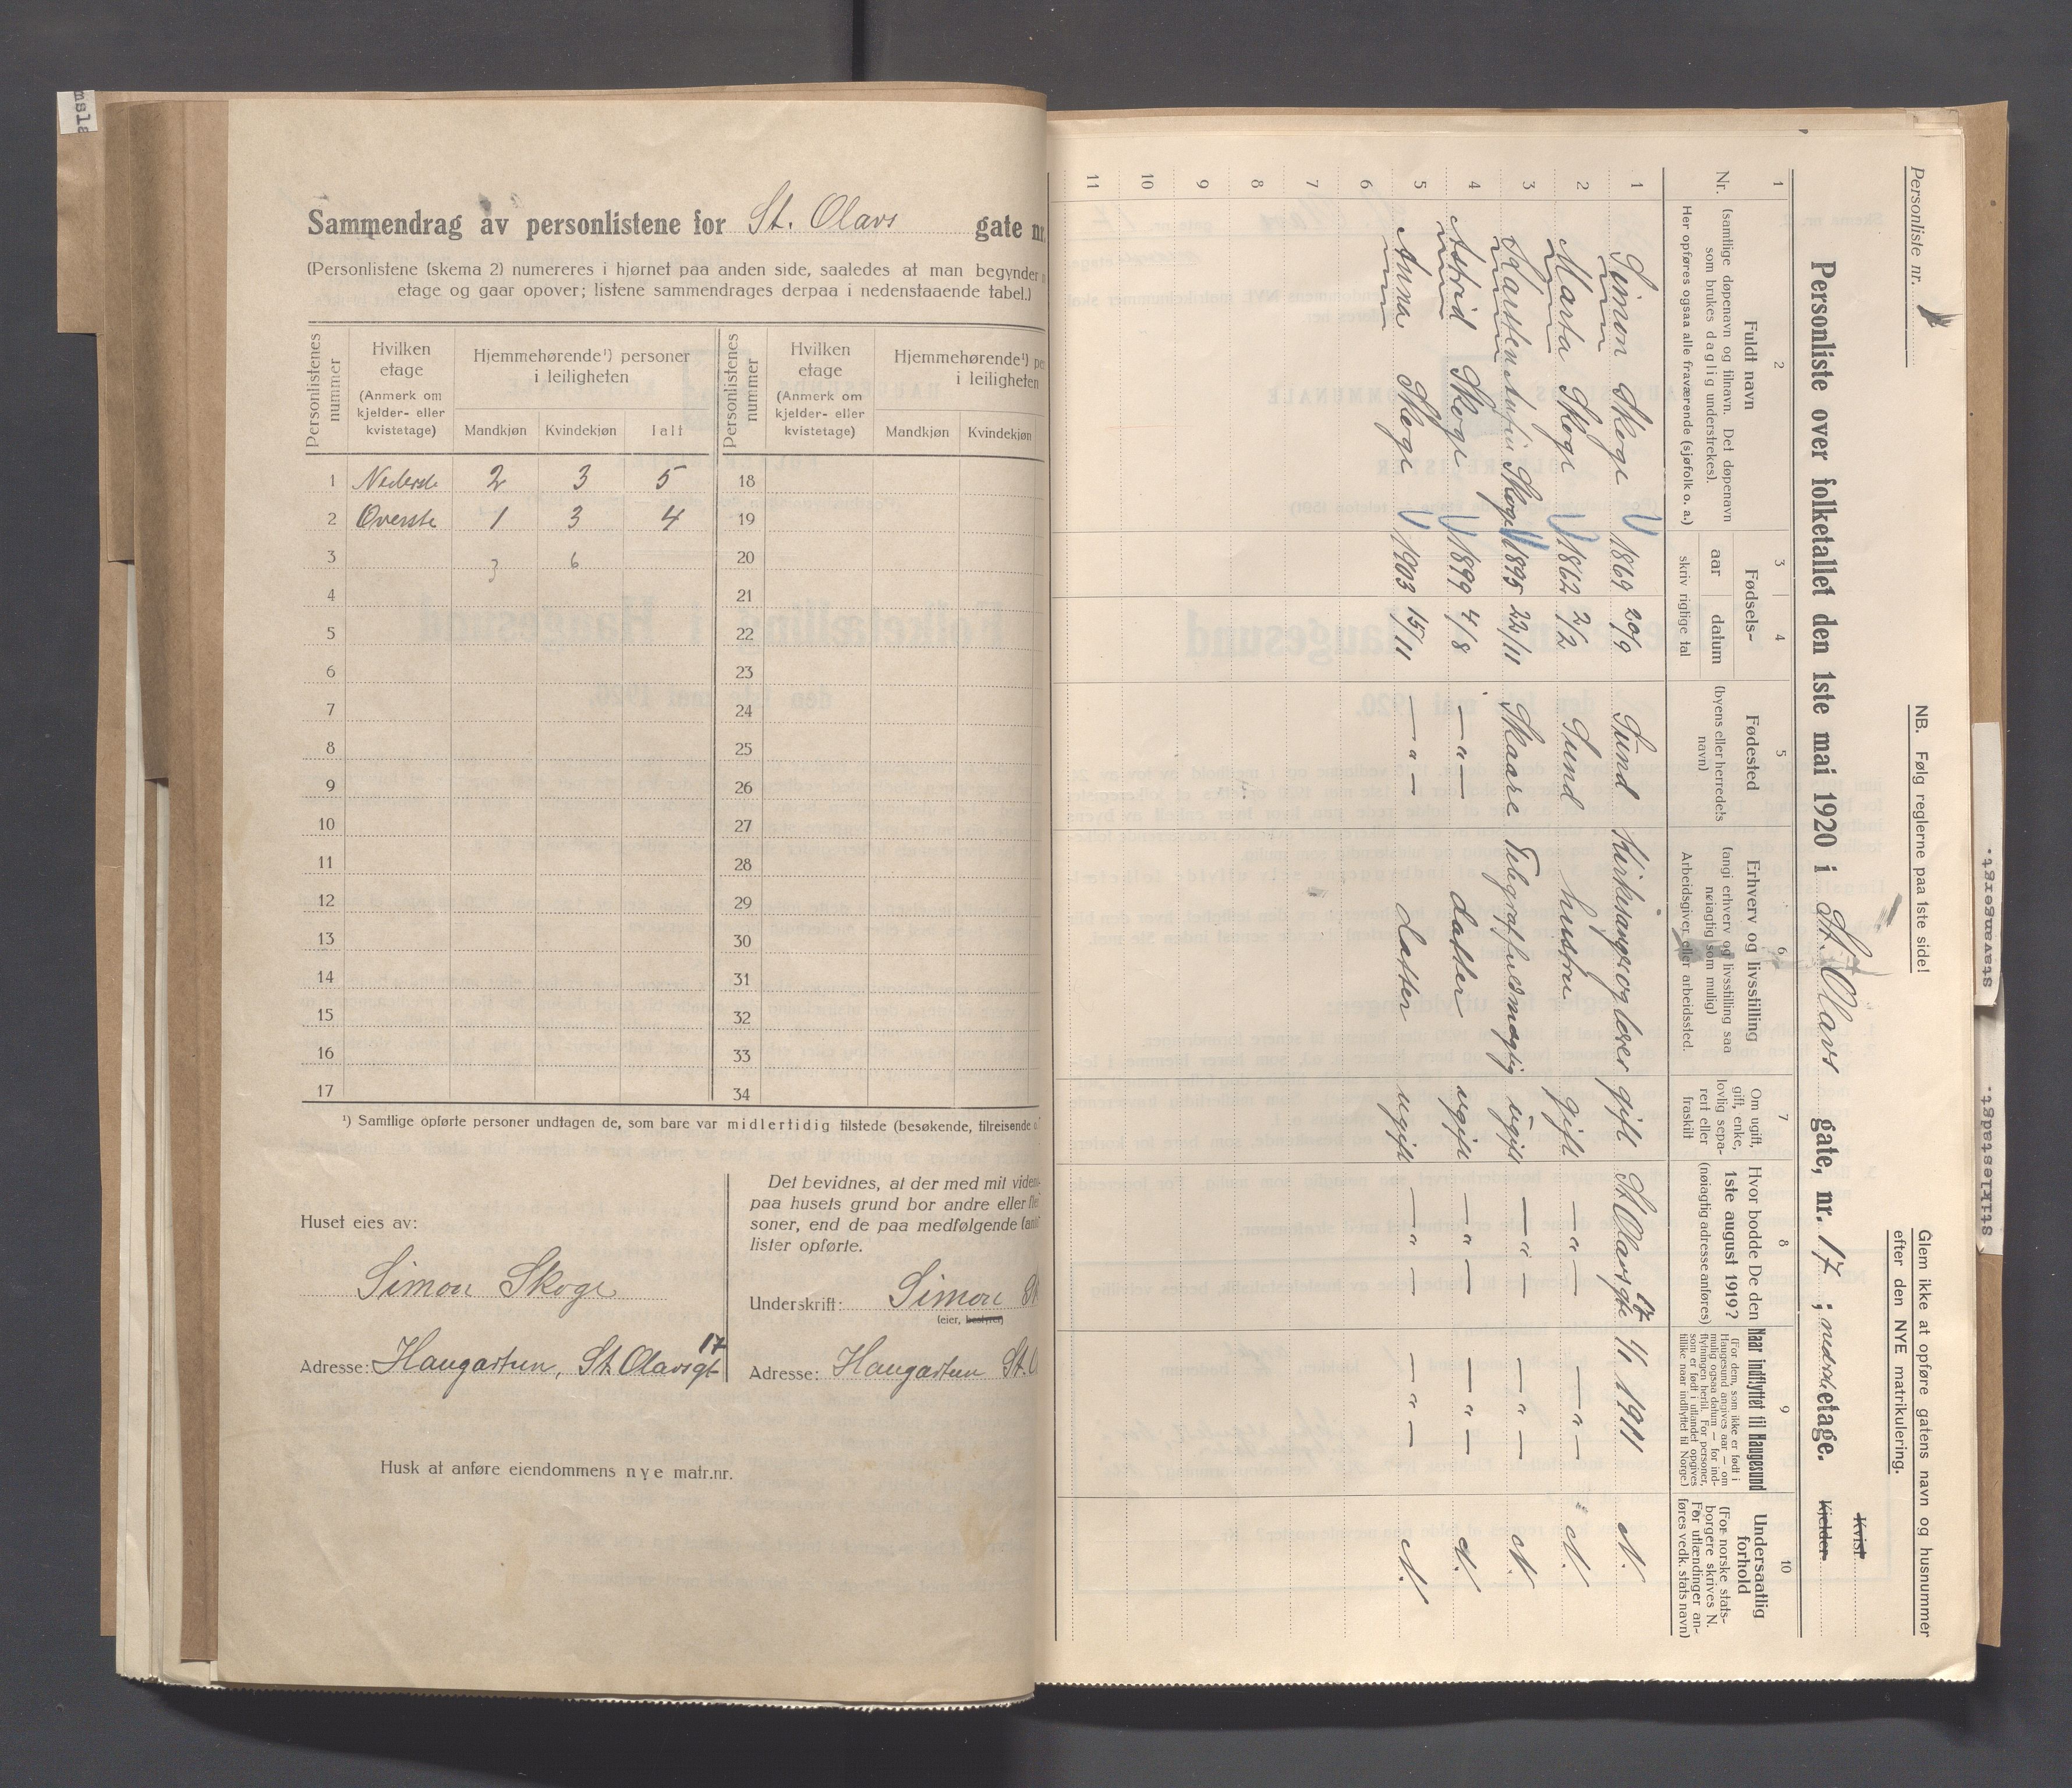 Sammendrag av personlistene for St. Olavs gate nr.
(Personlistene (skema 2) numereres i hjørnet paa anden side, saaledes at man begynder
etage og gaar opover; listene sammendrages derpaa i nedenstaaende tabel.)
Personlistenes nummer
Hvilken etage
(Anmerk om kjelder- eller kvistetage)
Hjemmehørende¹) personer i leiligheten
Mandkjøn Kvindekjøn Ialt
Personlistenes nummer
Hvilken etage
(Anmerk om kjelder- eller kvistetage)
Hjemmehørende¹) pe
i leiligheten
Mandkjøn Kvindekjøn
1 Nederste 2 3 5 18
2 Øverste 1 3 4 19
3 3 6 20
4 21
5 22
6 23
7 24
8 25
9 26
10 27
11 28
12 29
13 30
14 31
15 32
16 33
17 34
¹) Samtlige opførte personer undtagen de, som bare var midlertidig tilstede (besøkende, tilreisende
Huset eies av:
Simon Skoge
Adresse: Haugastun, St. Olavsgt 17
Det bevidnes, at der med mit viden
paa husets grund bor andre eller fle
soner, end de paa medfølgende (ant
lister opførte.
Underskrift: Simon Sk
(eier, bestyrer)
Adresse: Haugastun St. O
Husk at anføre eiendommens nye matr.nr.
Personliste nr. 1
NB. Følg reglerne paa 1ste side!
Glem ikke at opføre gatens navn og husnummer
efter den NYE matrikulering.
Kvist
Personliste over folketallet den 1ste mai 1920 i St. Olavs gate, nr. 17; nederste etage.
Kjelder
1 2 3 4 5 6 7 8 9 10
Nr.
Fuldt navn
(samtlige døpenavn og tilnavn. Det døpenavn
som brukes daglig understrekes).
Her opføres ogsaa alle fraværende (sjøfolk o. a.)
Fødsels-
aar datum
skriv rigtige tal
Fødested
(byens eller herredets
navn)
Erhverv og livsstilling
(angi erhverv og livsstilling saa
nøiagtig som mulig)
Arbeidsgiver eller arbeidssted.
Om ugift,
gift, enke,
lovlig sepa-
rert eller
fraskilt
Hvor bodde De den
1ste august 1919?
(nøiagtig adresse anføres)
Naar indflyttet til Haugesund
(For dem, som ikke er født i
Haugesund angives aar — om
mulig ogsaa datum — for ind-
flytningen hertil. For personer,
som er født i utlandet opgives
tillike naar indflyttet til Norge.)
Undersaatlig
forhold
(For norske stats-
borgere skrives N.
For utlændinger an-
føres vedk. stats navn)
1 Simon Skoge 1869 20/9 Sund Kirkesanger og lærer gift St Olavsgte 17 1/1 1911 N.
2 Marta Skoge 1862 2/2 Sund hustru gift —"— —"— N.
3 Skoge 1895 22/11 Skaare Telegraffuldmægtig ugift —"— —"— N.
4 Astrid Skoge 1899 4/8 —"— datter ugift —"— —"— N.
5 Anna Skoge 1903 15/11 —"— datter ugift —"— —"— N.
6
7
8
9
10
11
stavangergt.
stiklestadgt.